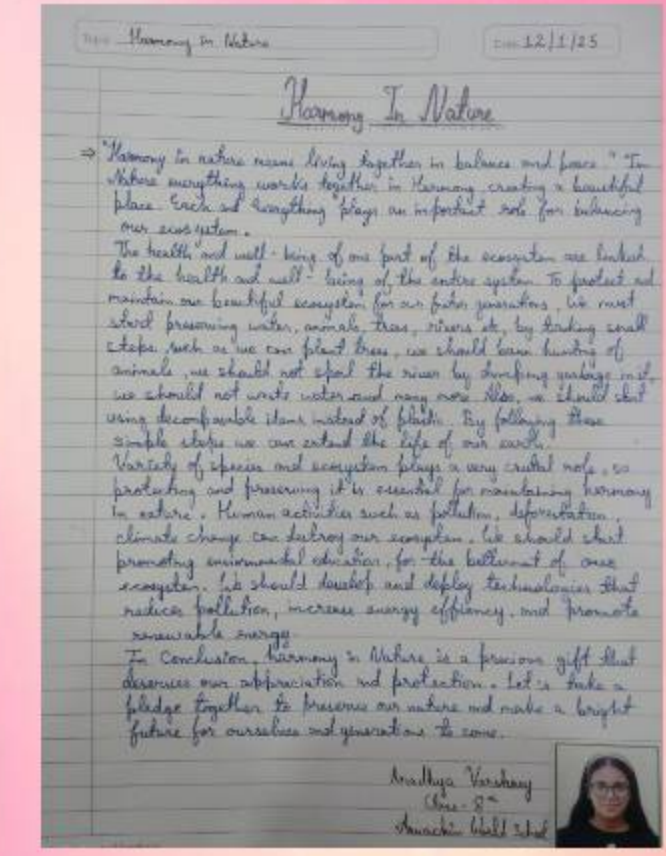 Harmony In Nature
Date 12/1/25
Harmony In Nature
⇒ "Harmony in nature means living together in balance and peace." In
Nature everything works together in Harmony creating a beautiful
place. Each and everything plays an important role for balancing
our ecosystem.
The health and well-being of one part of the ecosystem are linked
to the health and well-being of the entire system. To protect and
maintain our beautiful ecosystem for our generations, we must
start preserving water, animals, trees, rivers etc, by taking small
steps, such as we can plant trees, we should ban hunting of
animals, we should not spoil the river by dumping garbage in it,
we should not waste water and many more. Also, we should start
using decomposable items instead of plastic. By following these
simple steps we can extend the life of our earth.
Variety of species and ecosystem plays a very role, so
protecting and preserving it is essential for maintaining harmony
in nature. Human activities such as pollution, deforestation,
climate change can destroy our ecosystem. We should start
promoting environmental education, for the betterment of
ecosystem. We should develop and deploy technologies that
reduces pollution, increase energy, and promote
renewable energy.
In Conclusion, harmony in Nature is a precious gift that
deserves our appreciation and protection. Let's take a
pledge together to preserve our nature and make a bright
future for ourselves and generations to come.
Aradhya Varshney
Class - 8th
World School